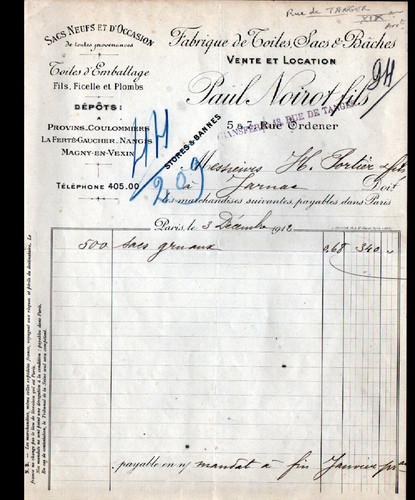 Rue de TANGER
XIX arrt
SACS NEUFS ET D'OCCASION
de toutes provenances
Toiles d'Emballage
FILS, FICELLE ET PLOMBS
DÉPÔTS:
A
PROVINS, COULOMMIERS
LA FERTÉ-GAUCHER, NANGIS
MAGNY-EN-VEXIN
TÉLÉPHONE 405.00
Fabrique de Toiles, Sacs & Bâches
VENTE ET LOCATION
Paul Noirot fils
5 & 7, Rue Ordener
TRANSFÉRÉ 18, RUE DE TANGER
STORES & BANNES
Messieurs H. Portier & fils
Jarnac Doit
les marchandises suivantes, payables dans Paris
Paris, le 3 Décembre 1912
500 sacs gruaux 0,68 340 "
payable en n/ mandat à fin Janvier